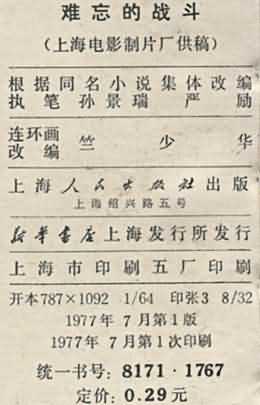 难忘的战斗
（上海电影制片厂供稿）
根据同名小说集体改编
执笔 孙景瑞 严励
连环画
改编 竺少华
上海人民出版社出版
上海绍兴路五号
新华书店上海发行所发行
上海市印刷五厂印刷
开本787×1092 1/64 印张3 8/32
1977年7月第1版
1977年7月第1次印刷
统一书号：8171·1767
定价：0.29元